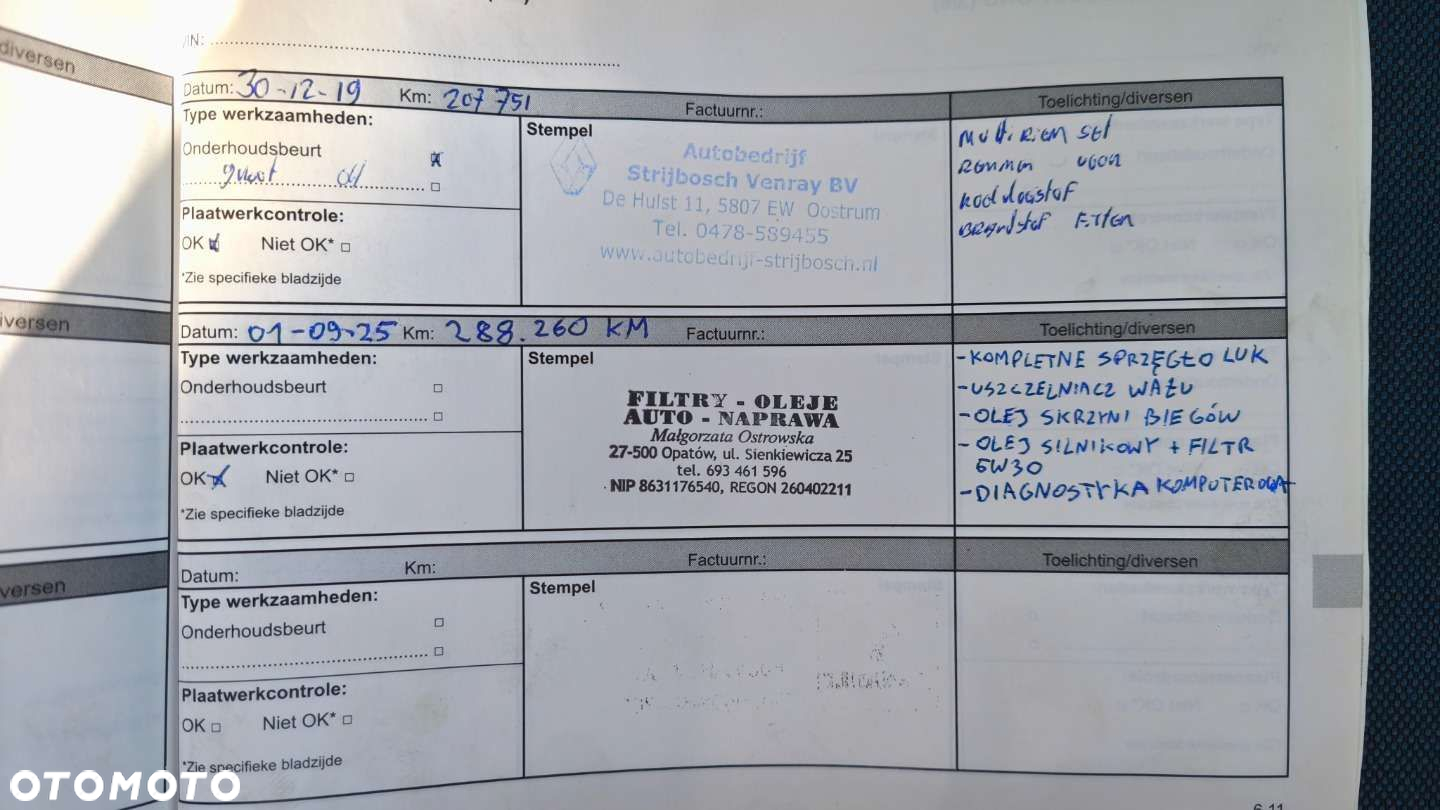 diversen
/IN:
Datum: 30-12-19 Km: 207 751 Factuurnr.: Toelichting/diversen
Type werkzaamheden:
Onderhoudsbeurt
Plaatwerkcontrole:
OK Niet OK*
*Zie specifieke bladzijde
Stempel
Autobedrijf
Strijbosch Venray BV
De Hulst 11, 5807 EW Oostrum
Tel. 0478-589455
www.autobedrijf-strijbosch.nl
Multiriem set
Remmen
koelvloeistof
Brandstof Filter
iversen
Datum: 01-09-25 Km: 288.260 KM Factuurnr.: Toelichting/diversen
Type werkzaamheden:
Onderhoudsbeurt
Plaatwerkcontrole:
OK Niet OK*
*Zie specifieke bladzijde
Stempel
FILTRY - OLEJE
AUTO - NAPRAWA
Małgorzata Ostrowska
27-500 Opatów, ul. Sienkiewicza 25
tel. 693 461 596
NIP 8631176540, REGON 260402211
-KOMPLETNE SPRZĘGŁO LUK
-USZCZELNIACZ WAŁU
-OLEJ SKRZYNI BIEGÓW
-OLEJ SILNIKOWY + FILTR
5W30
-DIAGNOSTYKA KOMPUTEROWA
versen
Datum: Km: Factuurnr.: Toelichting/diversen
Type werkzaamheden:
Onderhoudsbeurt
Plaatwerkcontrole:
OK Niet OK*
*Zie specifieke bladzijde
Stempel
6-11
OTOMOTO